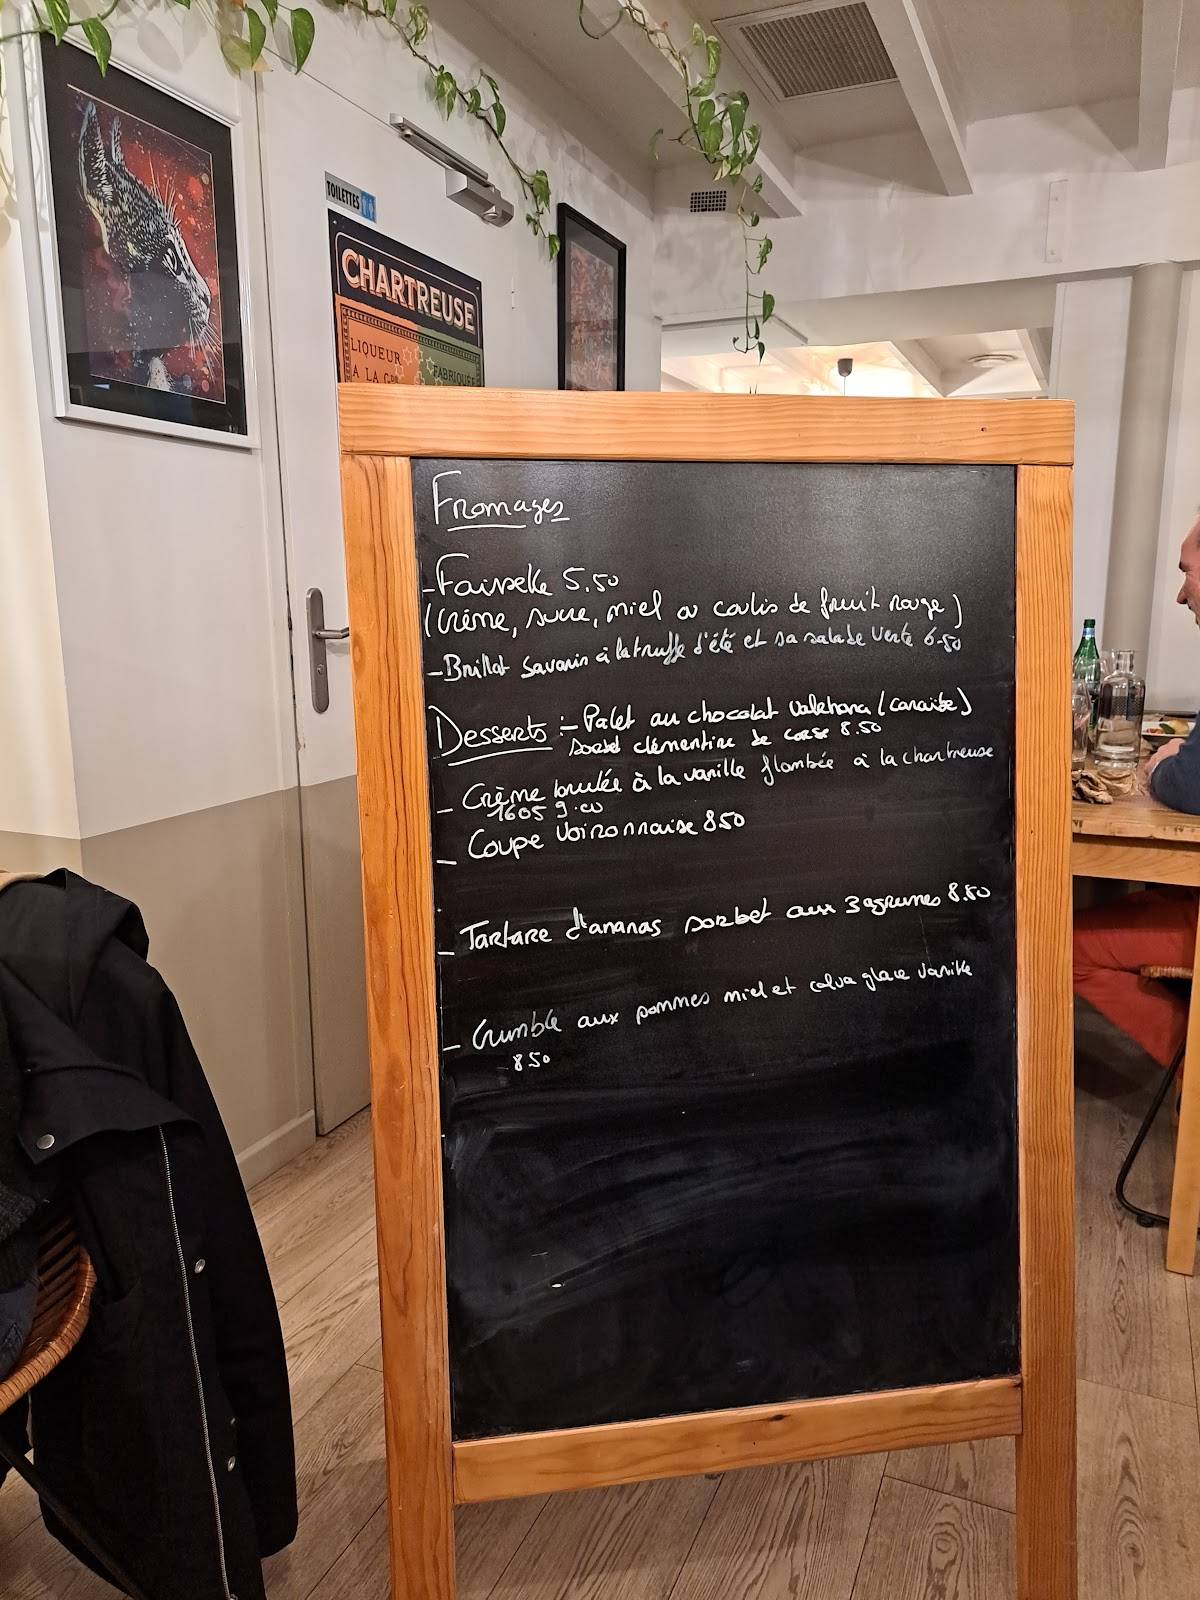 TOILETTES
CHARTREUSE
LIQUEUR
FABRIQUÉE
A LA
Fromages
- Faisselle 5.50
(Crème, sucre, miel ou coulis de fruit rouge)
- Brillat Savarin à la truffe d'été et sa salade verte 6.50
Desserts :- Palet au chocolat Valrhona (Caraïbe)
sorbet clémentine de corse 8.50
- Crème brulée à la vanille flambée à la chartreuse
1605 9.00
- Coupe Voironnaise 8.50
- Tartare d'ananas sorbet aux 3 agrumes 8.50
- Crumble aux pommes miel et calva glace vanille
8.50